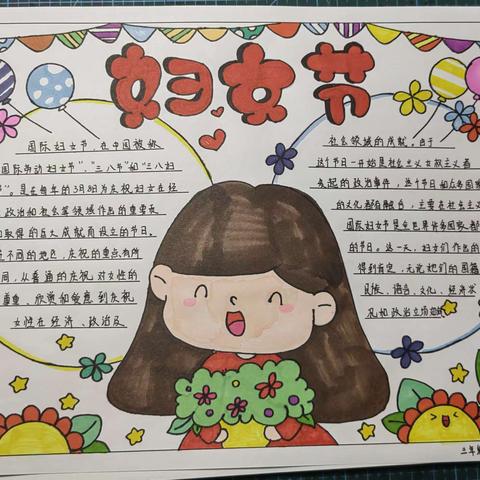 妇女节
国际妇女节,在中国被称
国际劳动妇女节"、"三八节"和"三八妇
"。是在每年的3月8日为庆祝妇女在经
政治和社会等领域作出的重要贡
和取得的巨大成就而设立的节日。
不同的地区,庆祝的重点有所
同,从普通的庆祝对女性的
尊重、欣赏和爱意到庆祝
女性在经济、政治及
社会领域的成就。由于
这个节日一开始是社会主义女权主义者
发起的政治事件,这个节日和在多国
的文化都有融合,主要在社会主
国际妇女节是全世界许多国家都
的节日。这一天,妇女们作出的
得到肯定,无论她们的国籍
民族、语言、文化、经济状
况和政治立场如何
三年